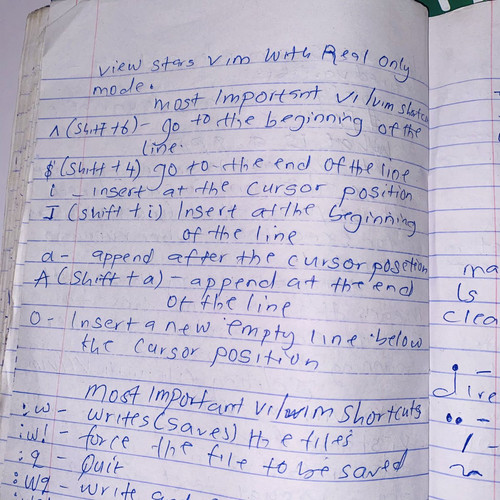 view stars vim with Real only
mode.
most Important vi/vim shortcu
^ (Shift + 6) - go to the beginning of the
line.
$ (Shift + 4) go to the end of the line
i - insert at the cursor position
I (shift + i) Insert at the beginning
of the line
a - append after the cursor position
A (Shift + a) - append at the end
of the line
O - Insert a new empty line below
the cursor position
most important vi/vim shortcuts
:w - writes (saves) the files
:w! - force the file to be saved
:q - Quit
:wq - write
ma
ls
clea
. -
dire
.. -
/ -
~